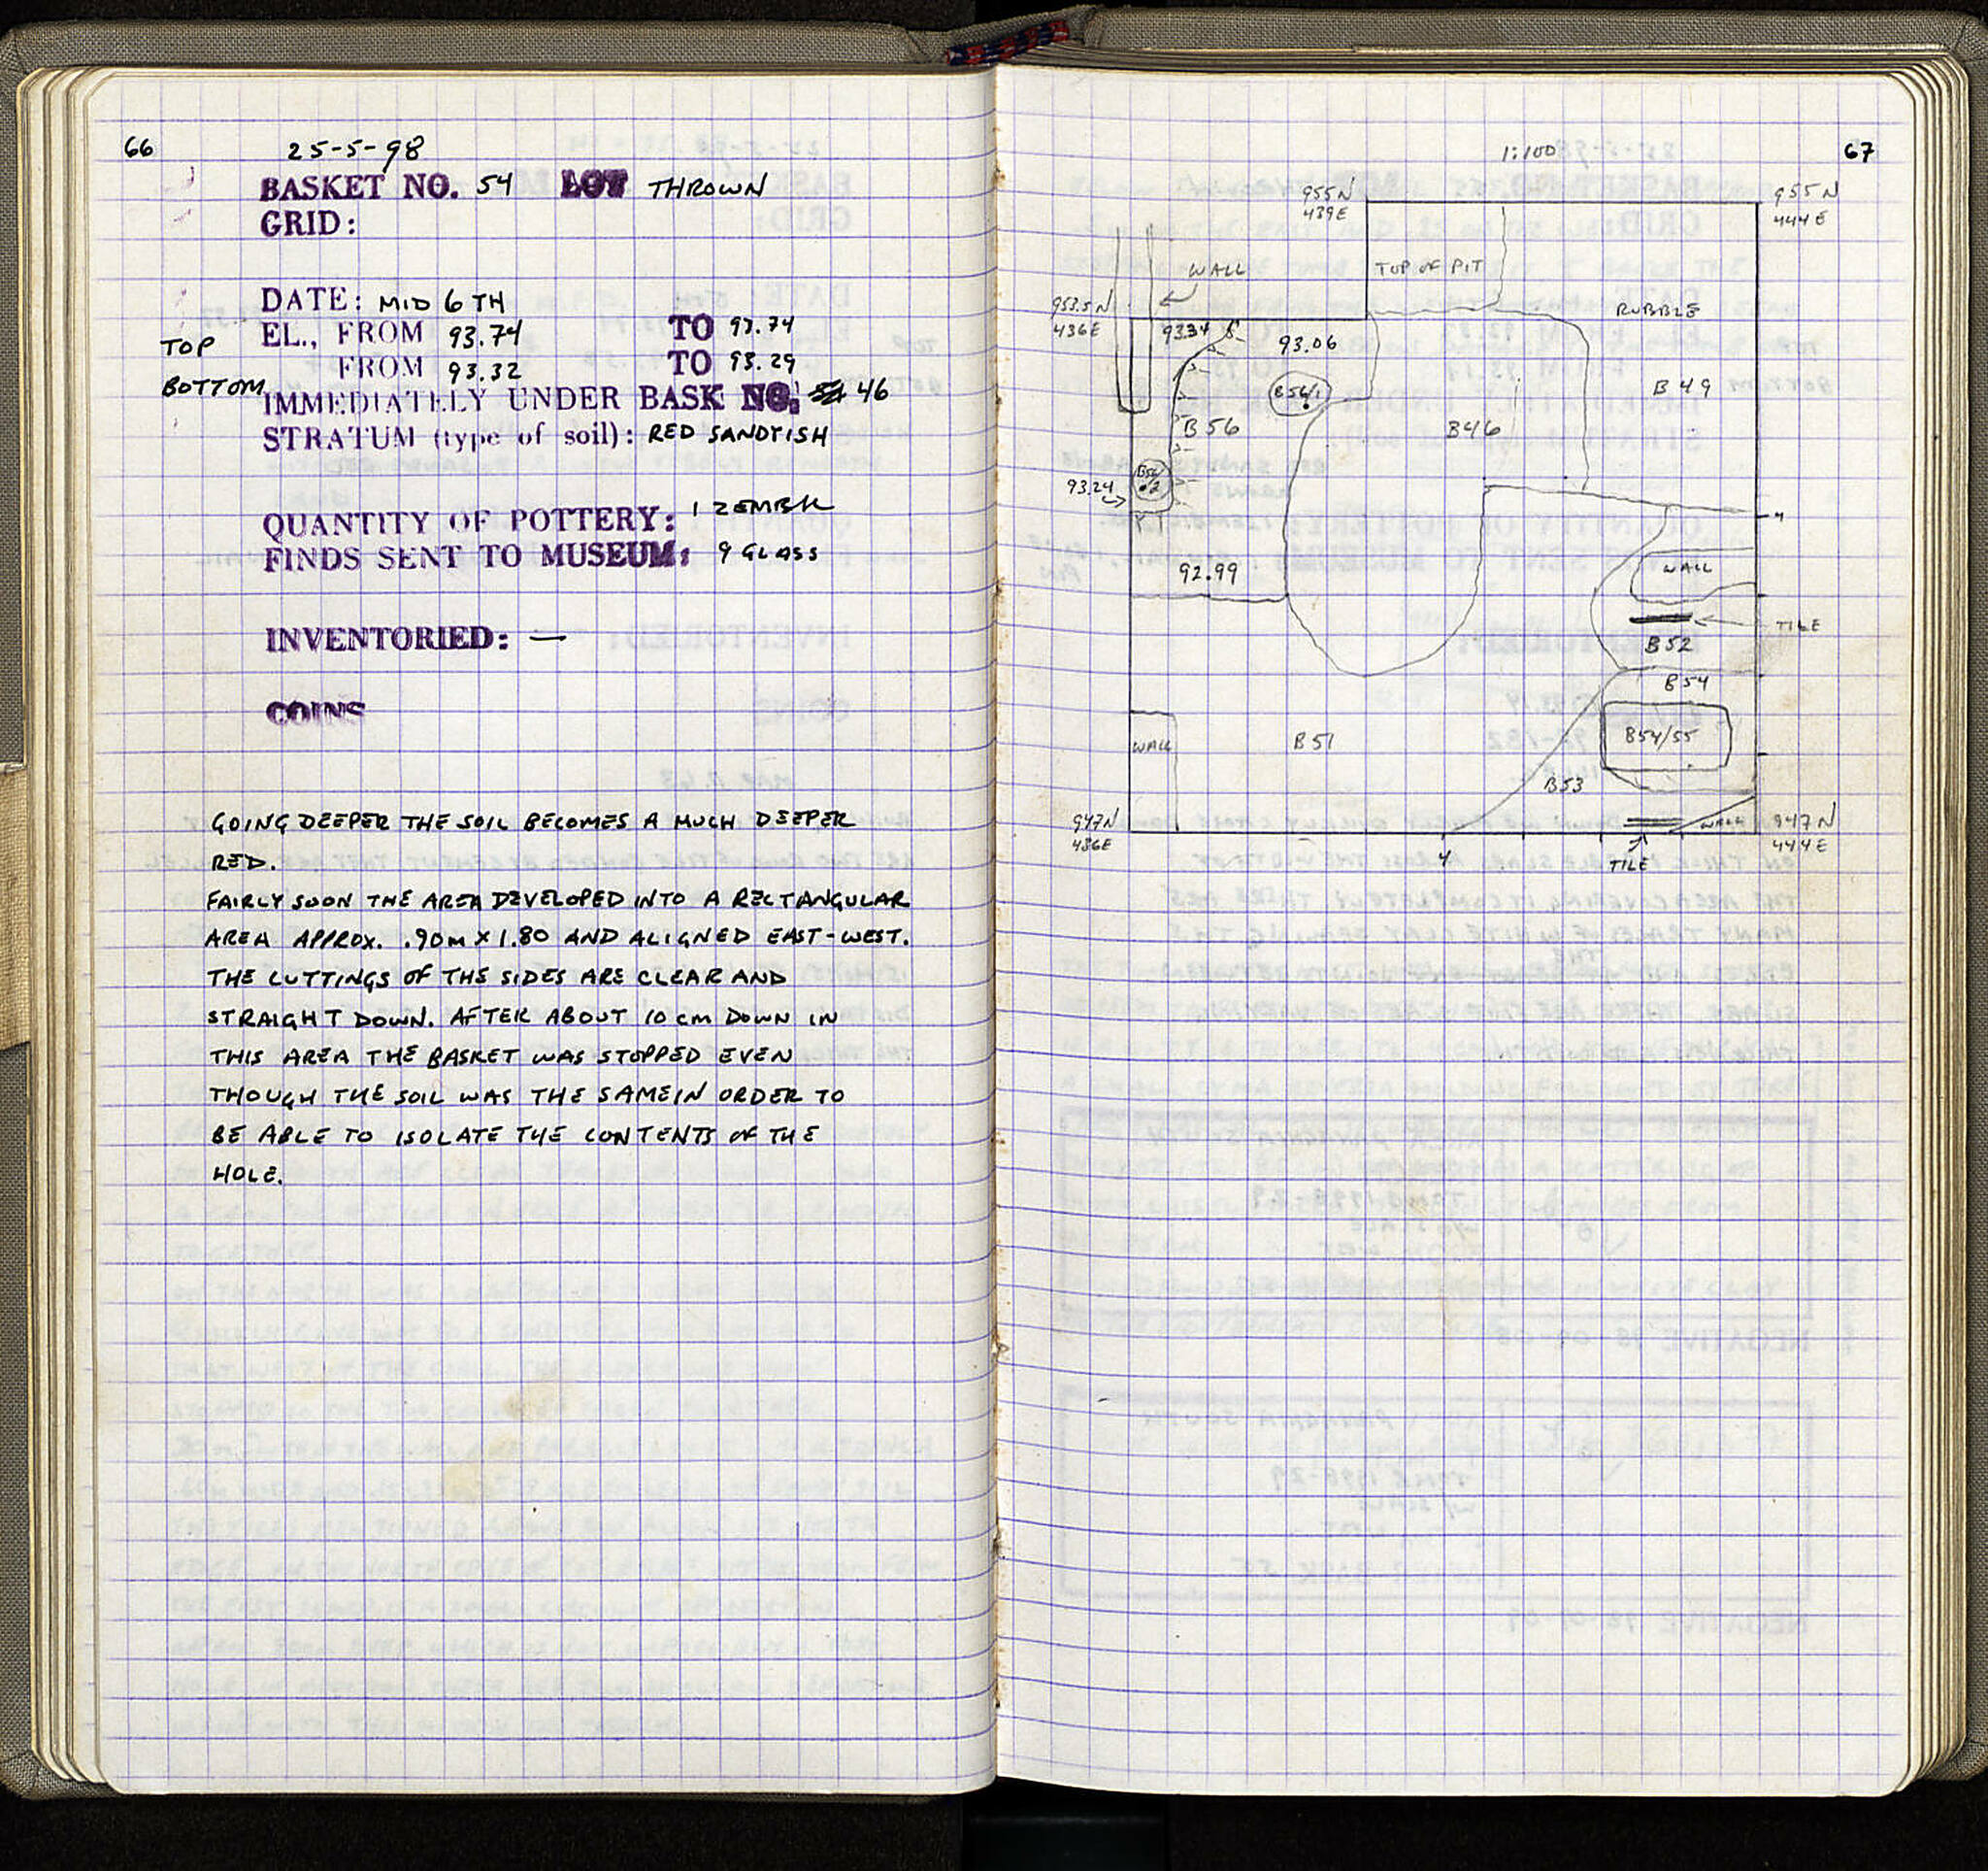 66
25-5-98
BASKET NO. 54 LOT THROWN
GRID:
DATE: MID 6TH
TOP EL., FROM 93.74 TO 93.74
BOTTOM FROM 93.32 TO 93.29
IMMEDIATELY UNDER BASK NO. 46
STRATUM (type of soil): RED SANDYISH
QUANTITY OF POTTERY: 1 ZEMBIL
FINDS SENT TO MUSEUM: 9 GLASS
INVENTORIED: —
COINS
GOING DEEPER THE SOIL BECOMES A MUCH DEEPER
RED.
FAIRLY SOON THE AREA DEVELOPED INTO A RECTANGULAR
AREA APPROX. .90m X 1.80 AND ALIGNED EAST-WEST.
THE CUTTINGS OF THE SIDES ARE CLEAR AND
STRAIGHT DOWN. AFTER ABOUT 10 cm DOWN IN
THIS AREA THE BASKET WAS STOPPED EVEN
THOUGH THE SOIL WAS THE SAME IN ORDER TO
BE ABLE TO ISOLATE THE CONTENTS OF THE
HOLE.
67
1:100
955 N
439 E
955 N
444 E
WALL
TOP OF PIT
953.5 N
436 E
RUBBLE
93.34
93.06
B56/1
B 49
B 56
B46
B56/2
93.24
92.99
WALL
TILE
B 52
B 54
B54/55
WALL
B 51
B 53
WALL
947 N
436 E
947 N
444 E
TILE